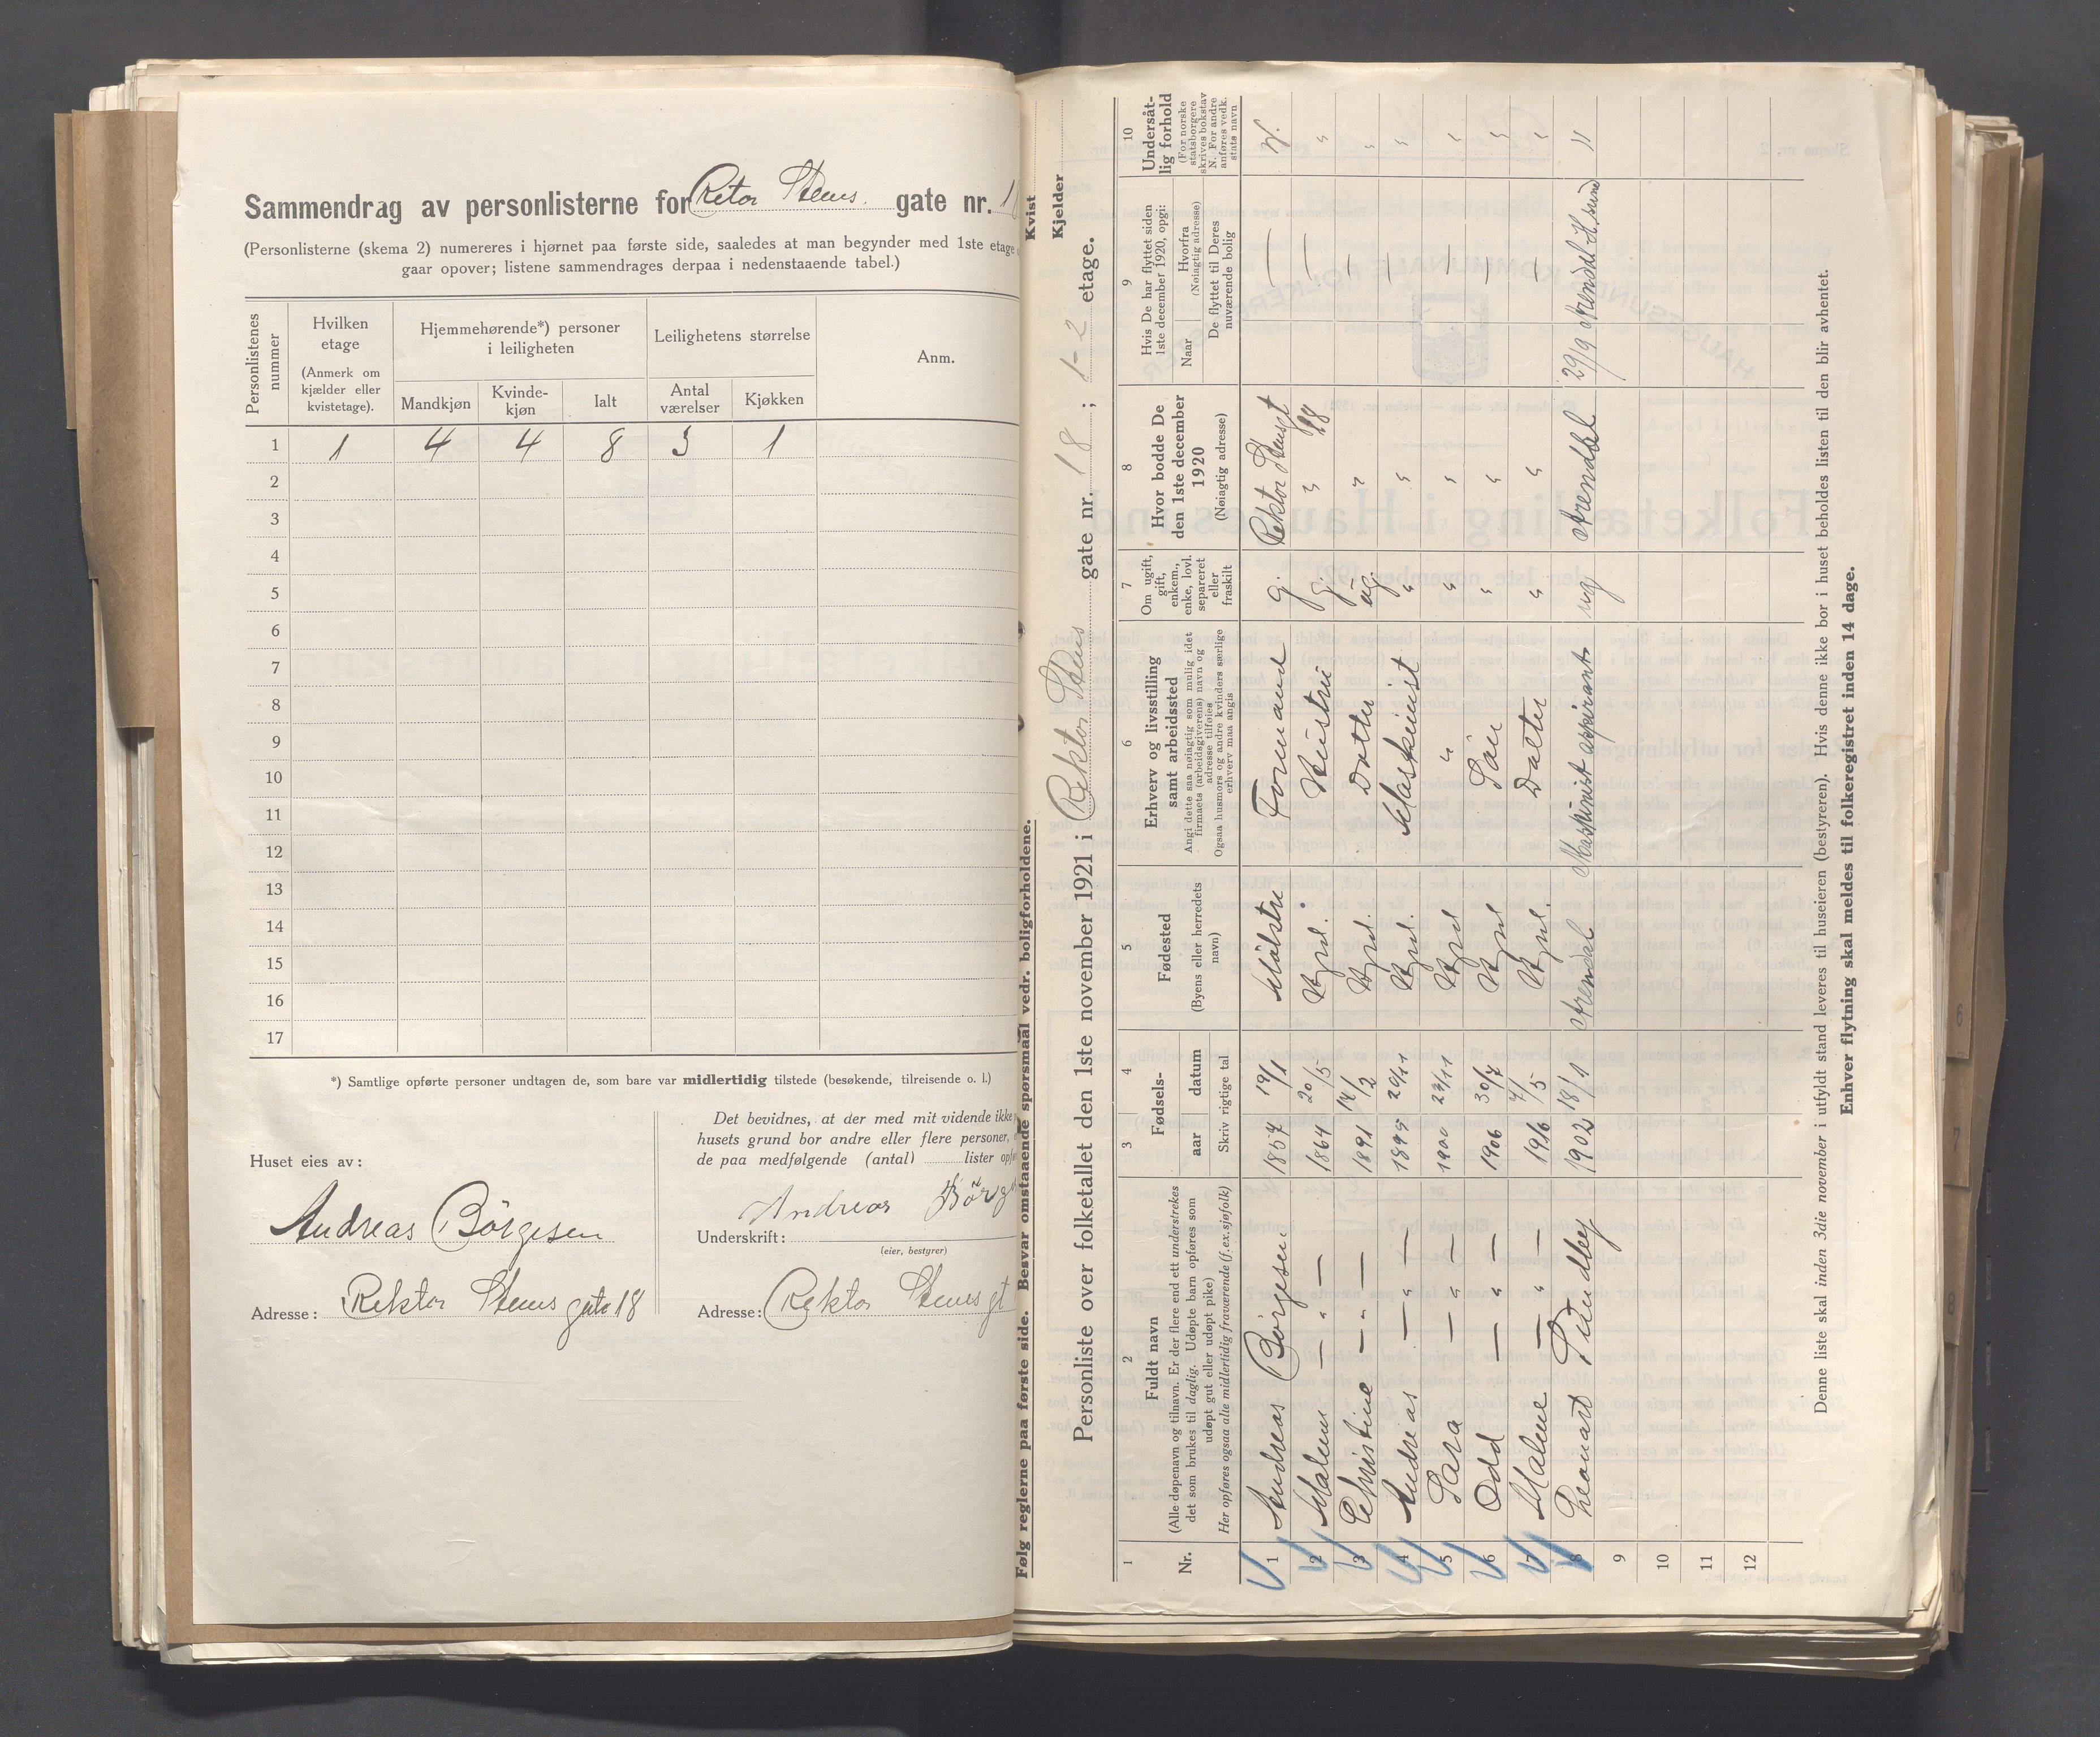 Sammendrag av personlisterne for Retor Stens gate nr. 1
(Personlisterne (skema 2) numereres i hjørnet paa første side, saaledes at man begynder med 1ste etage
gaar opover; listene sammendrages derpaa i nedenstaaende tabel.)
Personlistenes nummer
Hvilken etage
(Anmerk om kjælder eller kvistetage).
Hjemmehørende*) personer i leiligheten
Leilighetens størrelse
Anm.
Mandkjøn Kvinde-kjøn Ialt Antal værelser Kjøkken
1 1 4 4 8 3 1
2
3
4
5
6
7
8
9
10
11
12
13
14
15
16
17
*) Samtlige opførte personer undtagen de, som bare var midlertidig tilstede (besøkende, tilreisende o. l.)
Huset eies av:
Andreas Børgesen
Adresse: Rektor Stens gate 18
Det bevidnes, at der med mit vidende ikke
husets grund bor andre eller flere personer,
de paa medfølgende (antal) lister
Andreas
Underskrift:
(eier, bestyrer)
Adresse: Rektor Stens gt
Følg reglerne paa første side. Besvar omstaaende spørsmaal vedr. boligforholdene.
Kvist
Kjelder
Personliste over folketallet den 1ste november 1921 i Rektor Stens gate nr. 18; 1-2 etage.
1 2 3 4 5 6 7 8 9 10
Nr.
Fuldt navn
(Alle døpenavn og tilnavn. Er der flere end ett understrekes
det som brukes til daglig. Udøpte barn opføres som
udøpt gut eller udøpt pike)
Her opføres ogsaa alle midlertidig fraværende (f.ex.sjøfolk)
Fødsels-
aar datum
Skriv rigtige tal
Fødested
(Byens eller herredets navn)
Erhverv og livsstilling
samt arbeidssted
Angi dette saa nøiagtig som mulig idet
firmaets (arbeidsgiverens) navn og
adresse tilføies
Ogsaa husmors og andre kvinders særlige
erhverv maa angis
Om ugift,
gift,
enkem.,
enke, lovl.
separeret
eller
fraskilt
Hvor bodde De
den 1ste december
1920
(Nøiagtig adresse)
Hvis De har flyttet siden
1ste december 1920, opgi:
Naar
Hvorfra
(Nøiagtig adresse)
De flyttet til Deres
nuværende bolig
Undersåt-
lig forhold
(For norske
statsborgere
skrives bokstav
N. For andre
anføres vedk.
stats navn
1 Andreas Børgesen 1857 19/1 Formand g. Rektor Stensgt 18 — N.
2 Malene — " — 1864 20/5 Hustru g. " — "
3 Christine — " — 1891 14/2 Datter ug. " — "
4 Andreas — " — 1895 20/11 Maskinist " " — "
5 Sara — " — 1900 23/11 " " " — "
6 Odd — " — 1906 30/7 Sön " " — "
7 Malene — " — 1916 7/5 Datter " " — "
8 Leonart Sundbey 1902 18/1 Arendal Maskinist aspirant ug Arendal 29/9 Arendal H.sund "
9
10
11
12
Denne liste skal inden 3die november i utfyldt stand leveres til huseieren (bestyreren). Hvis denne ikke bor i huset beholdes listen til den blir avhentet.
Enhver flytning skal meldes til folkeregistret inden 14 dage.